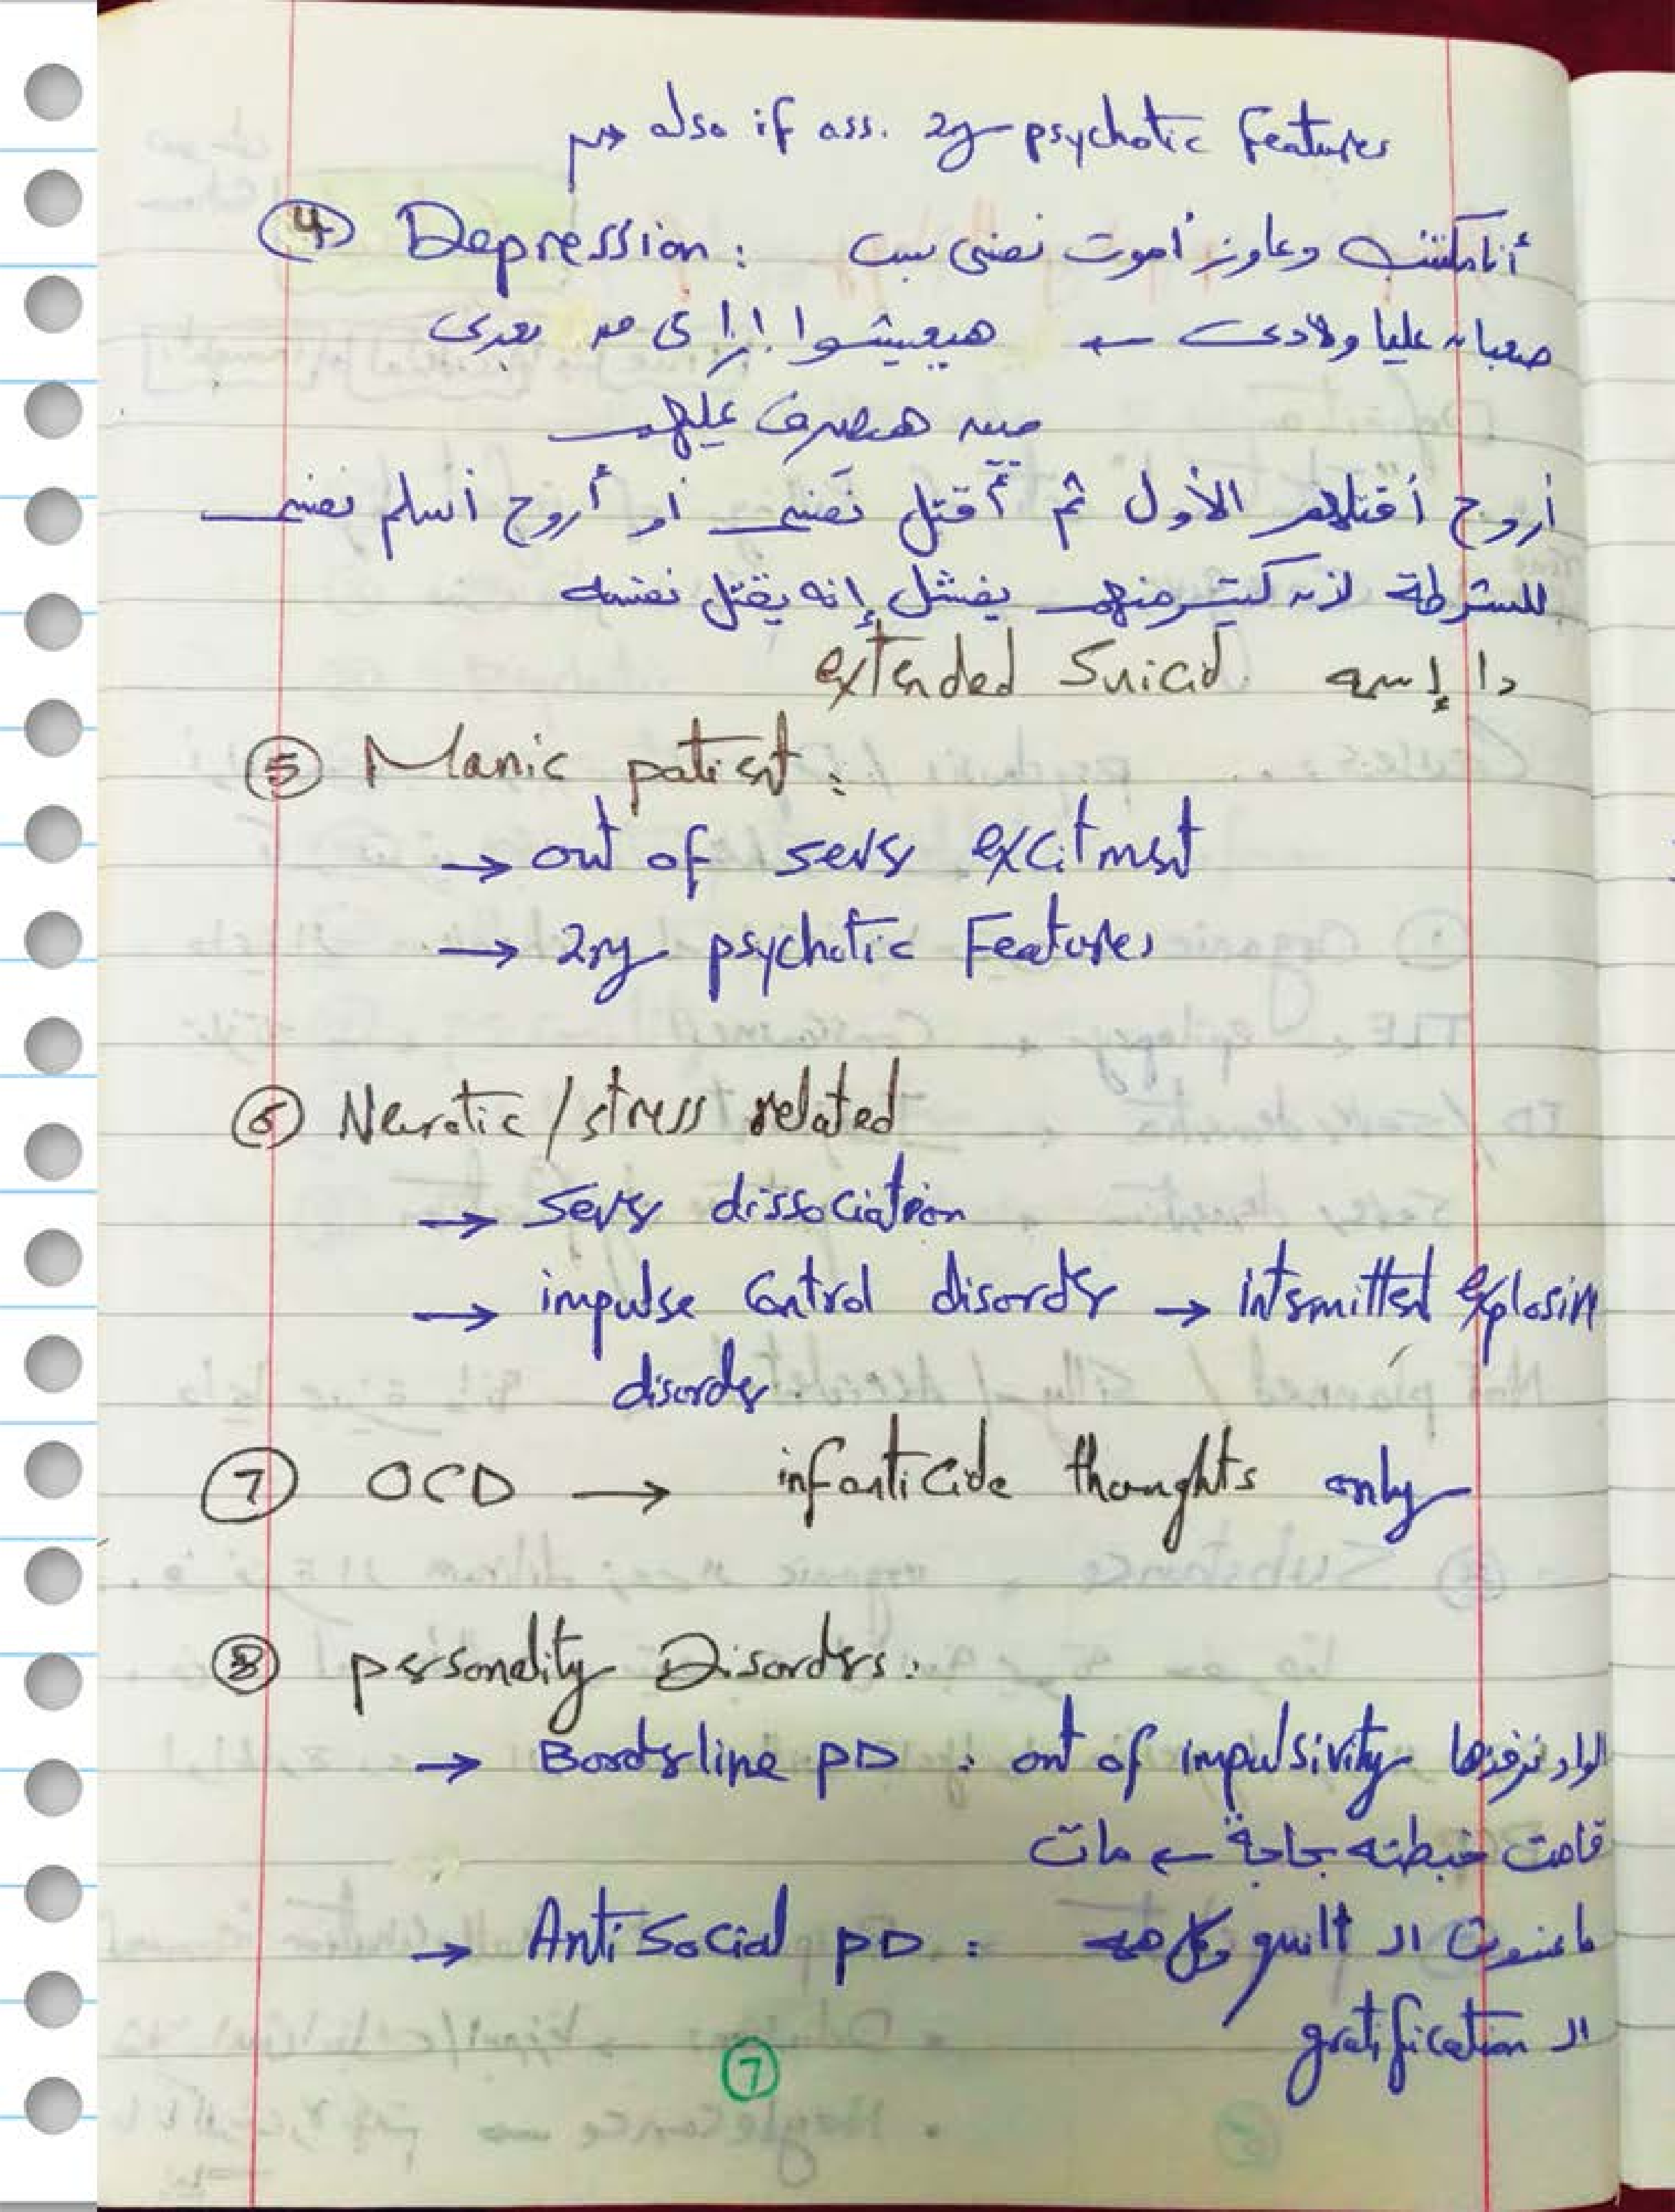 → also if ass. 2ry psychotic features
④ Depression : أنا مكتئب وعاوز أموت نفسى بس
صعبان عليا ولادى ← هيعيشوا إزاى من بعدى
مين هيصرف عليهم
أروح أقتلهم الأول ثم أقتل نفسى أو أروح أسلم نفسى
للشرطة لأن كتير منهم يفشل إنه يقتل نفسه
دا إسمه extended Suicid
⑤ Manic patient :
→ out of sever excitment
→ 2ry psychotic Features
⑥ Neurotic / stress related
→ Sever dissociation
→ impulse Control disorder → intermittent explosive
disorder
⑦ OCD → infanticide thoughts only
⑧ personality Disorders :
→ Borderline PD : out of impulsivity الواد نرفزها
قامت خبطته بحاجة ← مات
→ Anti Social PD : ماعندوش ال guilt وكل همه
ال gratification
⑦